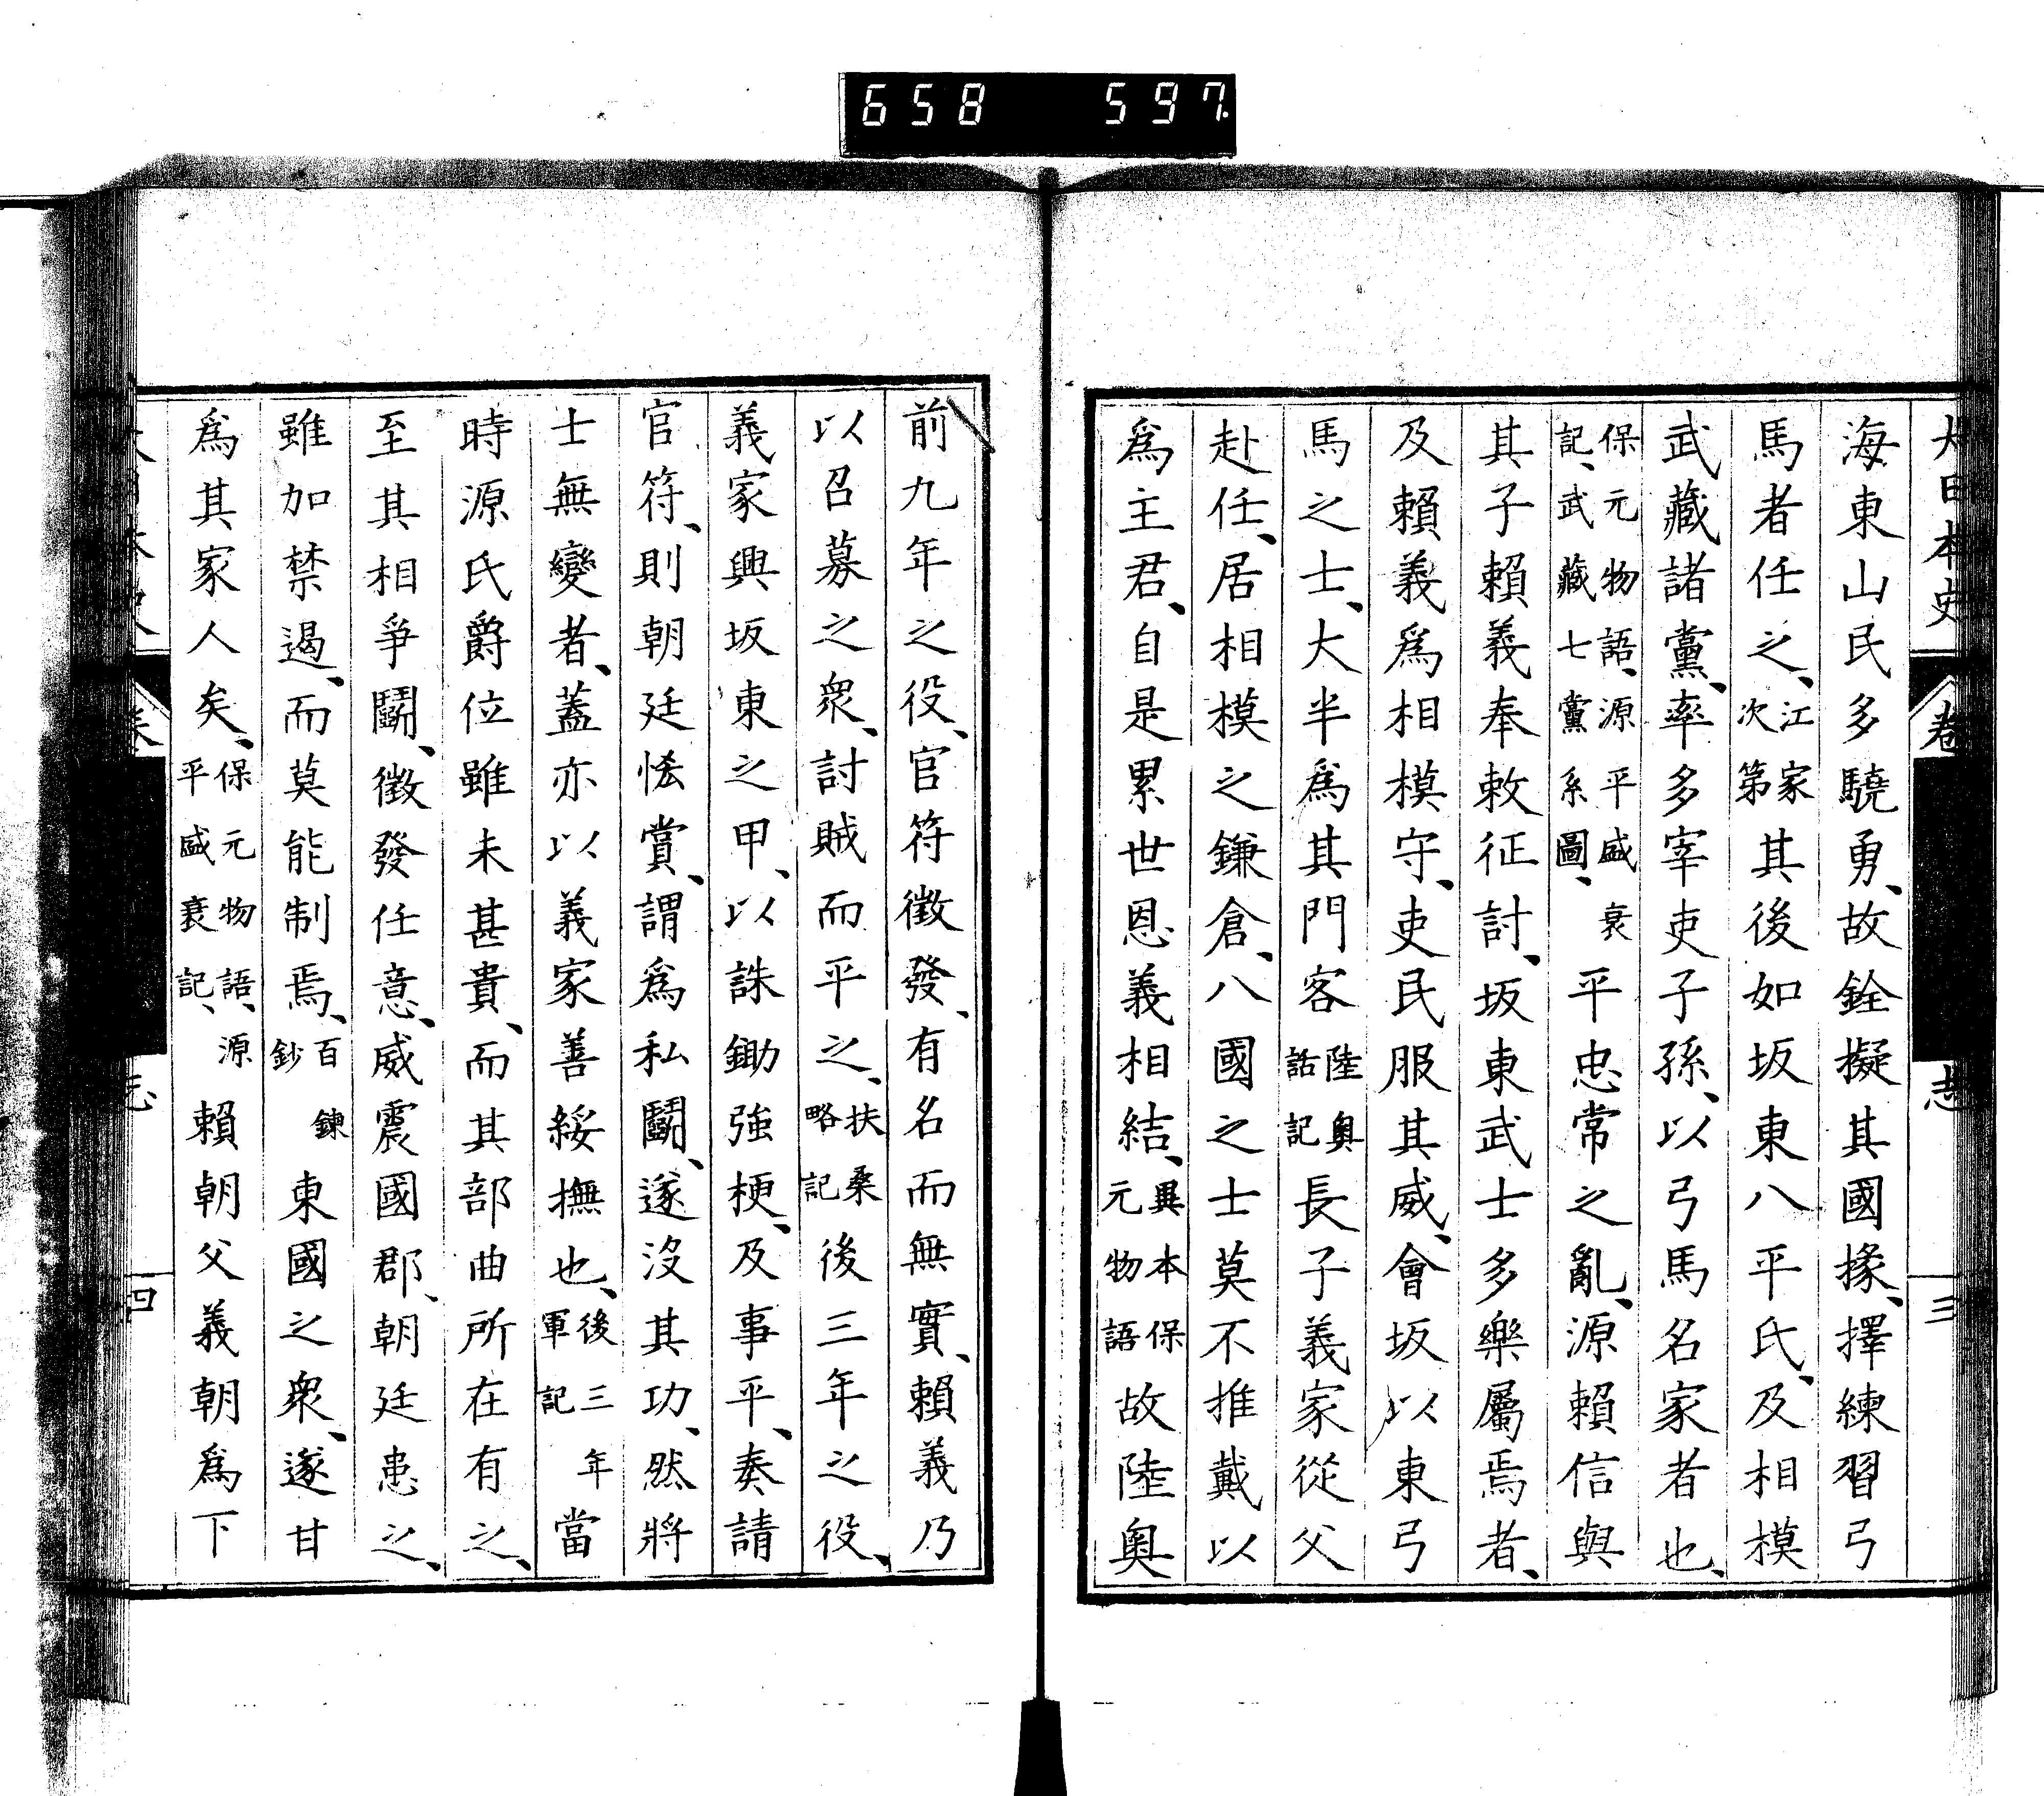 658 597
大日本史 卷 志 三
海東山民多驍勇、故銓擬其國掾、擇練習弓
馬者任之、江家次第其後如坂東八平氏、及相模
武藏諸黨、率多宰吏子孫、以弓馬名家者也、
保元物語、源平盛衰記、武藏七黨系圖、平忠常之亂、源賴信與
其子賴義奉敕征討、坂東武士多樂屬焉者、
及賴義爲相模守、吏民服其威、會坂以東弓
馬之士、大半爲其門客陸奧話記長子義家從父
赴任、居相模之鎌倉、八國之士莫不推戴以
爲主君、自是累世恩義相結、異本保元物語故陸奧
前九年之役、官符徵發、有名而無實、賴義乃
以召募之衆、討賊而平之、扶桑略記後三年之役、
義家興坂東之甲、以誅鋤強梗、及事平、奏請
官符、則朝廷恡賞、謂爲私鬭、遂沒其功、然將
士無變者、蓋亦以義家善綏撫也、後三年軍記當
時源氏爵位雖未甚貴、而其部曲所在有之、
至其相爭鬭、徵發任意、威震國郡、朝廷患之、
雖加禁遏、而莫能制焉、百鍊鈔東國之衆、遂甘
爲其家人矣、保元物語、源平盛衰記、賴朝父義朝爲下
四